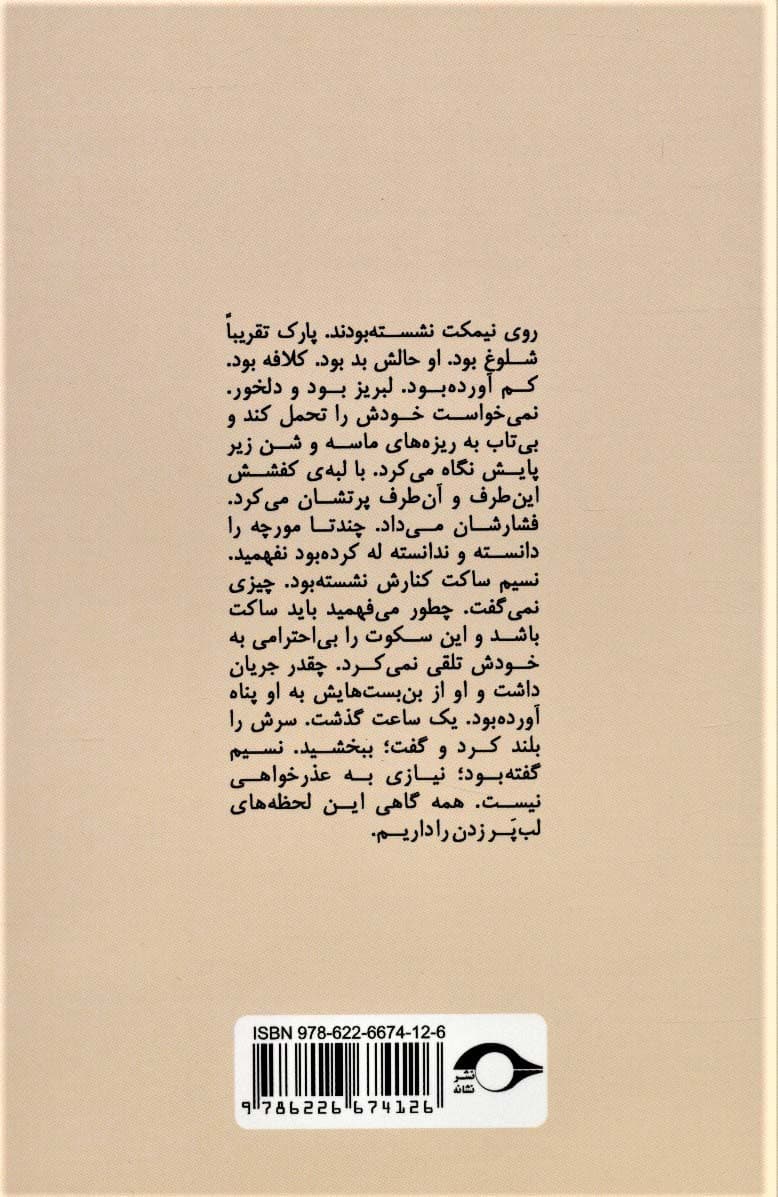 روی نیمکت نشسته‌بودند. پارک تقریباً
شلوغ بود. او حالش بد بود. کلافه بود.
کم آورده‌بود. لبریز بود و دلخور.
نمی‌خواست خودش را تحمل کند و
بی‌تاب به ریزه‌های ماسه و شن زیر
پایش نگاه می‌کرد. با لبه‌ی کفشش
این‌طرف و آن‌طرف پرتشان می‌کرد.
فشارشان می‌داد. چندتا مورچه را
دانسته و ندانسته له کرده‌بود نفهمید.
نسیم ساکت کنارش نشسته‌بود. چیزی
نمی‌گفت. چطور می‌فهمید باید ساکت
باشد و این سکوت را بی‌احترامی به
خودش تلقی نمی‌کرد. چقدر جریان
داشت و او از بن‌بست‌هایش به او پناه
آورده‌بود. یک ساعت گذشت. سرش را
بلند کرد و گفت؛ ببخشید. نسیم
گفته‌بود؛ نیازی به عذرخواهی
نیست. همه گاهی این لحظه‌های
لب‌پَر زدن را داریم.
ISBN 978-622-6674-12-6
نشر
نشانه
9 786226 674126